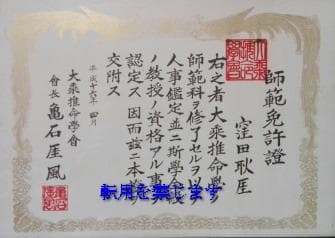 師範免許證
窪田耿厓
右之者大乘推命學ノ
師範科ヲ修了セルヲ以テ
人事鑑定並ニ斯學全般
ノ教授ノ資格アル事ヲ
認定ス因而茲ニ本證ヲ
交附ス
平成十六年四月
大乘推命學會
會長 亀石厓風
転用を禁じます